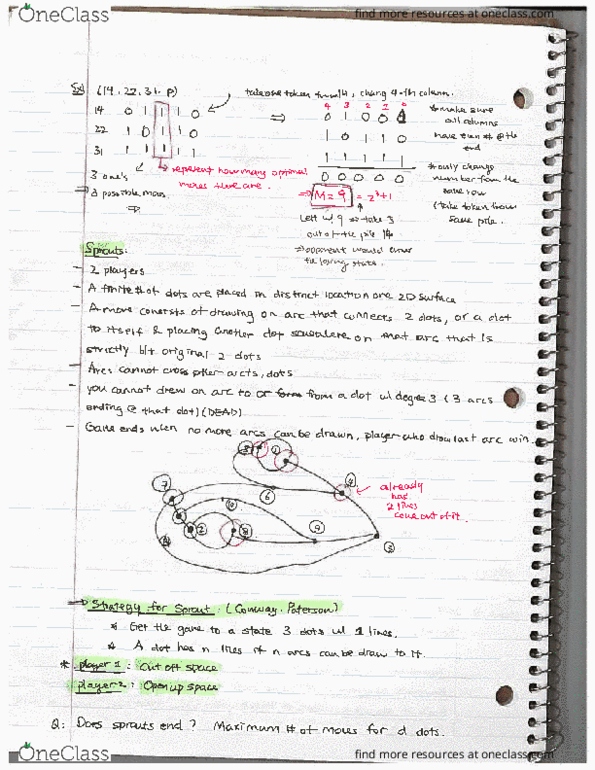 OneClass
find more resources at oneclass.com
Ex (14, 22, 31, P) take one token from 14, chang 4-th column.
14 0 1 1 1 0
22 1 0 1 1 0
31 1 1 1 1 1
4 3 2 1 0
⇒ 0 1 0 0
1 0 1 1 0
1 1 1 1 1
0 0 0 0 0
* make sure
all columns
have even # @ the
end
* only change
number from the
same row
(take token from
same pile.
3 one's
→ represent how many optimal
moves there are.
⇒ 3 possible moves.
⇒ M = 9 = 2³+1
Left w/ 9 ⇒ take
out of the pile 14
⇒ opponent would
the losing state.
Sprouts:
- 2 players
- A finite # of dots are placed in distinct location one 2D surface
- A move consists of drawing on arc that connects 2 dots, or a dot
to itself & placing another dot somewhere on that arc that is
strictly b/t original 2 dots
- Arcs cannot cross other arcs, dots
- you cannot draw on arc to or from a dot w/ degree 3 (3 arcs
ending @ that dot) (DEAD)
- Game ends when no more arcs can be drawn, player who draw last arc win.
3
1
4
7
6
10
2
8
9
5
already
has
2 lines
come out of it.
→ Strategy for Sprout. (Conway. Paterson)
* Get the game to a state 3 dots w/ 1 lines.
* A dot has n lifes if n arcs can be draw to it.
* player 1: Cut off space
player 2: Open up space
Q: Does sprouts end? Maximum # of moves for d dots.
OneClass
find more resources at oneclass.com